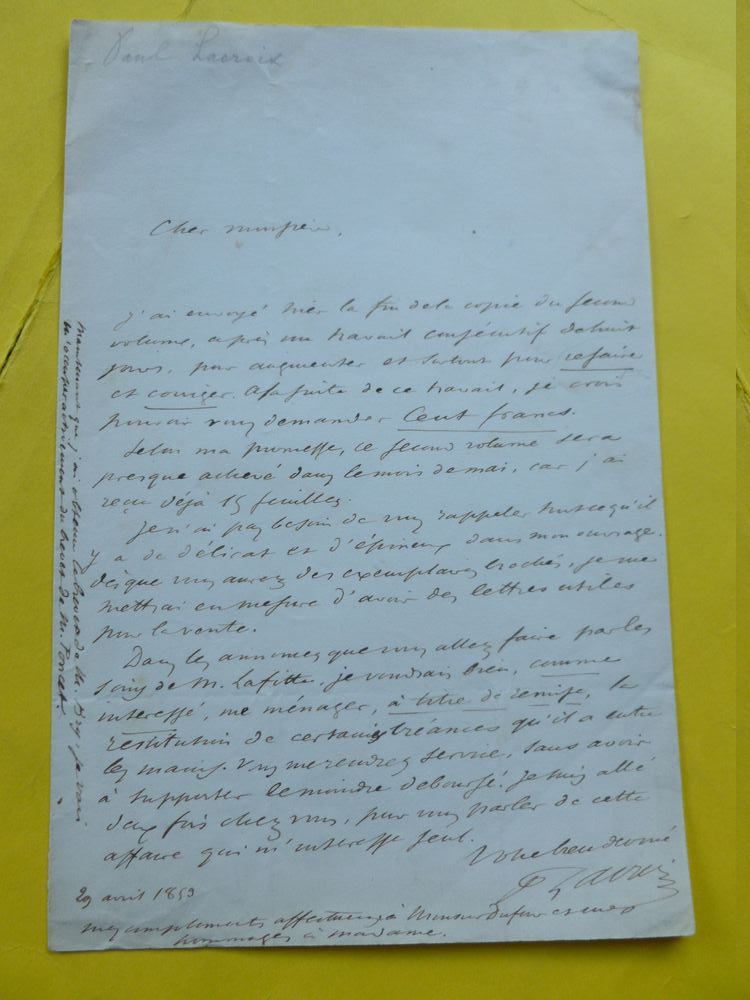 Paul Lacroix
Cher monsieur,
J'ai envoyé hier la fin de la copie du second
volume, après un travail consécutif de huit
jours, pour augmenter et surtout pour refaire
et corriger. A la suite de ce travail, je crois
pouvoir vous demander Cent francs.
Selon ma promesse, ce second volume sera
presque achevé dans le mois de mai, car j'ai
reçu déjà 15 feuilles.
Je n'ai pas besoin de vous rappeler tout ce qu'il
y a de délicat et d'épineux dans mon ouvrage.
dès que vous aurez des exemplaires brochés, je me
mettrai en mesure d'avoir des lettres utiles
pour la vente.
Dans les annonces que vous allez faire par les
soins de M. Lafitte, je voudrais bien, comme
intéressé, me ménager, à titre de remise, la
restitution de certaines créances qu'il a entre
les mains. Vous me rendrez service, sans avoir
à supporter le moindre déboursé. Je suis allé
deux fois chez vous, pour vous parler de cette
affaire qui m'intéresse seul.
Votre bien dévoué
P Lacroix
29 avril 1859
mes compliments affectueux à Monsieur Dufour et mes
hommages à madame.
Maintenant que j'ai obtenu le brevet de M. Dry, je vais
m'occuper activement du brevet de M. Poncet.